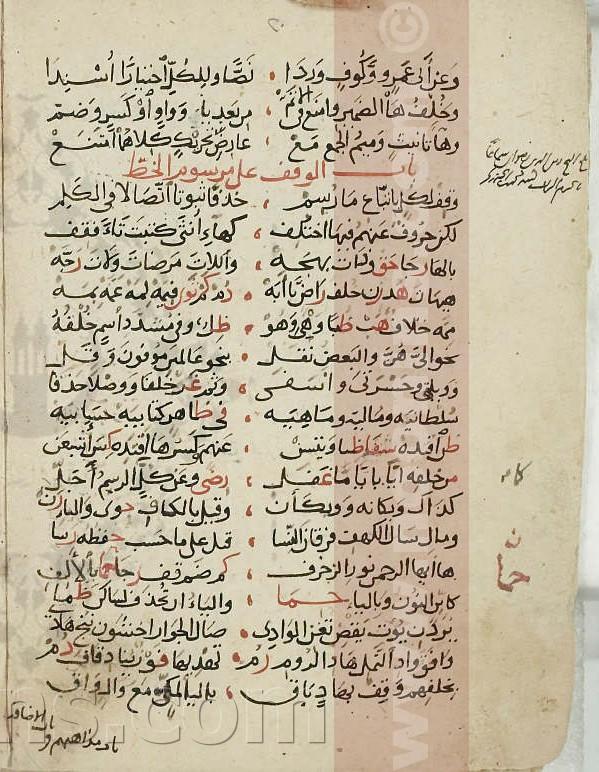 وعن أبى عمرو وكوف وردا ، نصا وللكل اختيارا أسندا
وخلف ها الضمير وامنع في الأتم ، من بعد يا أو واو أو كسر وضم
وها تأنيث وميم الجمع مع ، عارض تحريك كلاهما امتنع
باب الوقف على مرسوم الخط
وقف لكل باتباع ما رسم ، حذفا ثبوتا اتصالا في الكلم
لكن حروف عنهم فيها اختلف ، كهاء أنثى كتبت تاء فقف
بالها رجا حق وذات بهجه ، واللات مرضات ولات رجه
هيهات هد زن خلف راض يا أبه ، دم كم ثوى فيمه لمه عمه بمه
ممه خلاف هب ظبا وهي وهو ، ظل وفي مشدد اسم خلفه
نحو الي هن والبعض نقل ، بنحو عالمين موفون وقل
وويلتى وحسرتى وأسفى ، وثم غر خلفا ووصلا حذفا
سلطانيه وماليه وماهيه ، في ظاهر كتابيه حسابيه
ظن اقتده شفا ظبا ويتسن ، عنهم وكسر ها اقتده كس أشبعن
من خلفه أيا بأيا ما غفل ، رضى وعن كل الرسم أجل
كذاك ويكانه وويكأن ، وقيل بالكاف حوى والياء رن
ومال سال الكهف فرقان النسا ، قيل على ما حسب حفظه رسا
ها أيها الرحمن نور الزخرف ، كم ضم قف رجا حما بالألف
كاين النون وباليا حما ، والياء ان تحذف لساكن ظما
يردن يؤت يقض تغن الوادي ، صال الجوار اخشون ننج هاد
وافق واد النمل هاد الروم رم ، تهد بها فوز يناد قاف دم
بخلفهم وقف بهاد باق ، باليا لمكي مع وال واق
باب مذاهبهم في يا الاضافة
حما